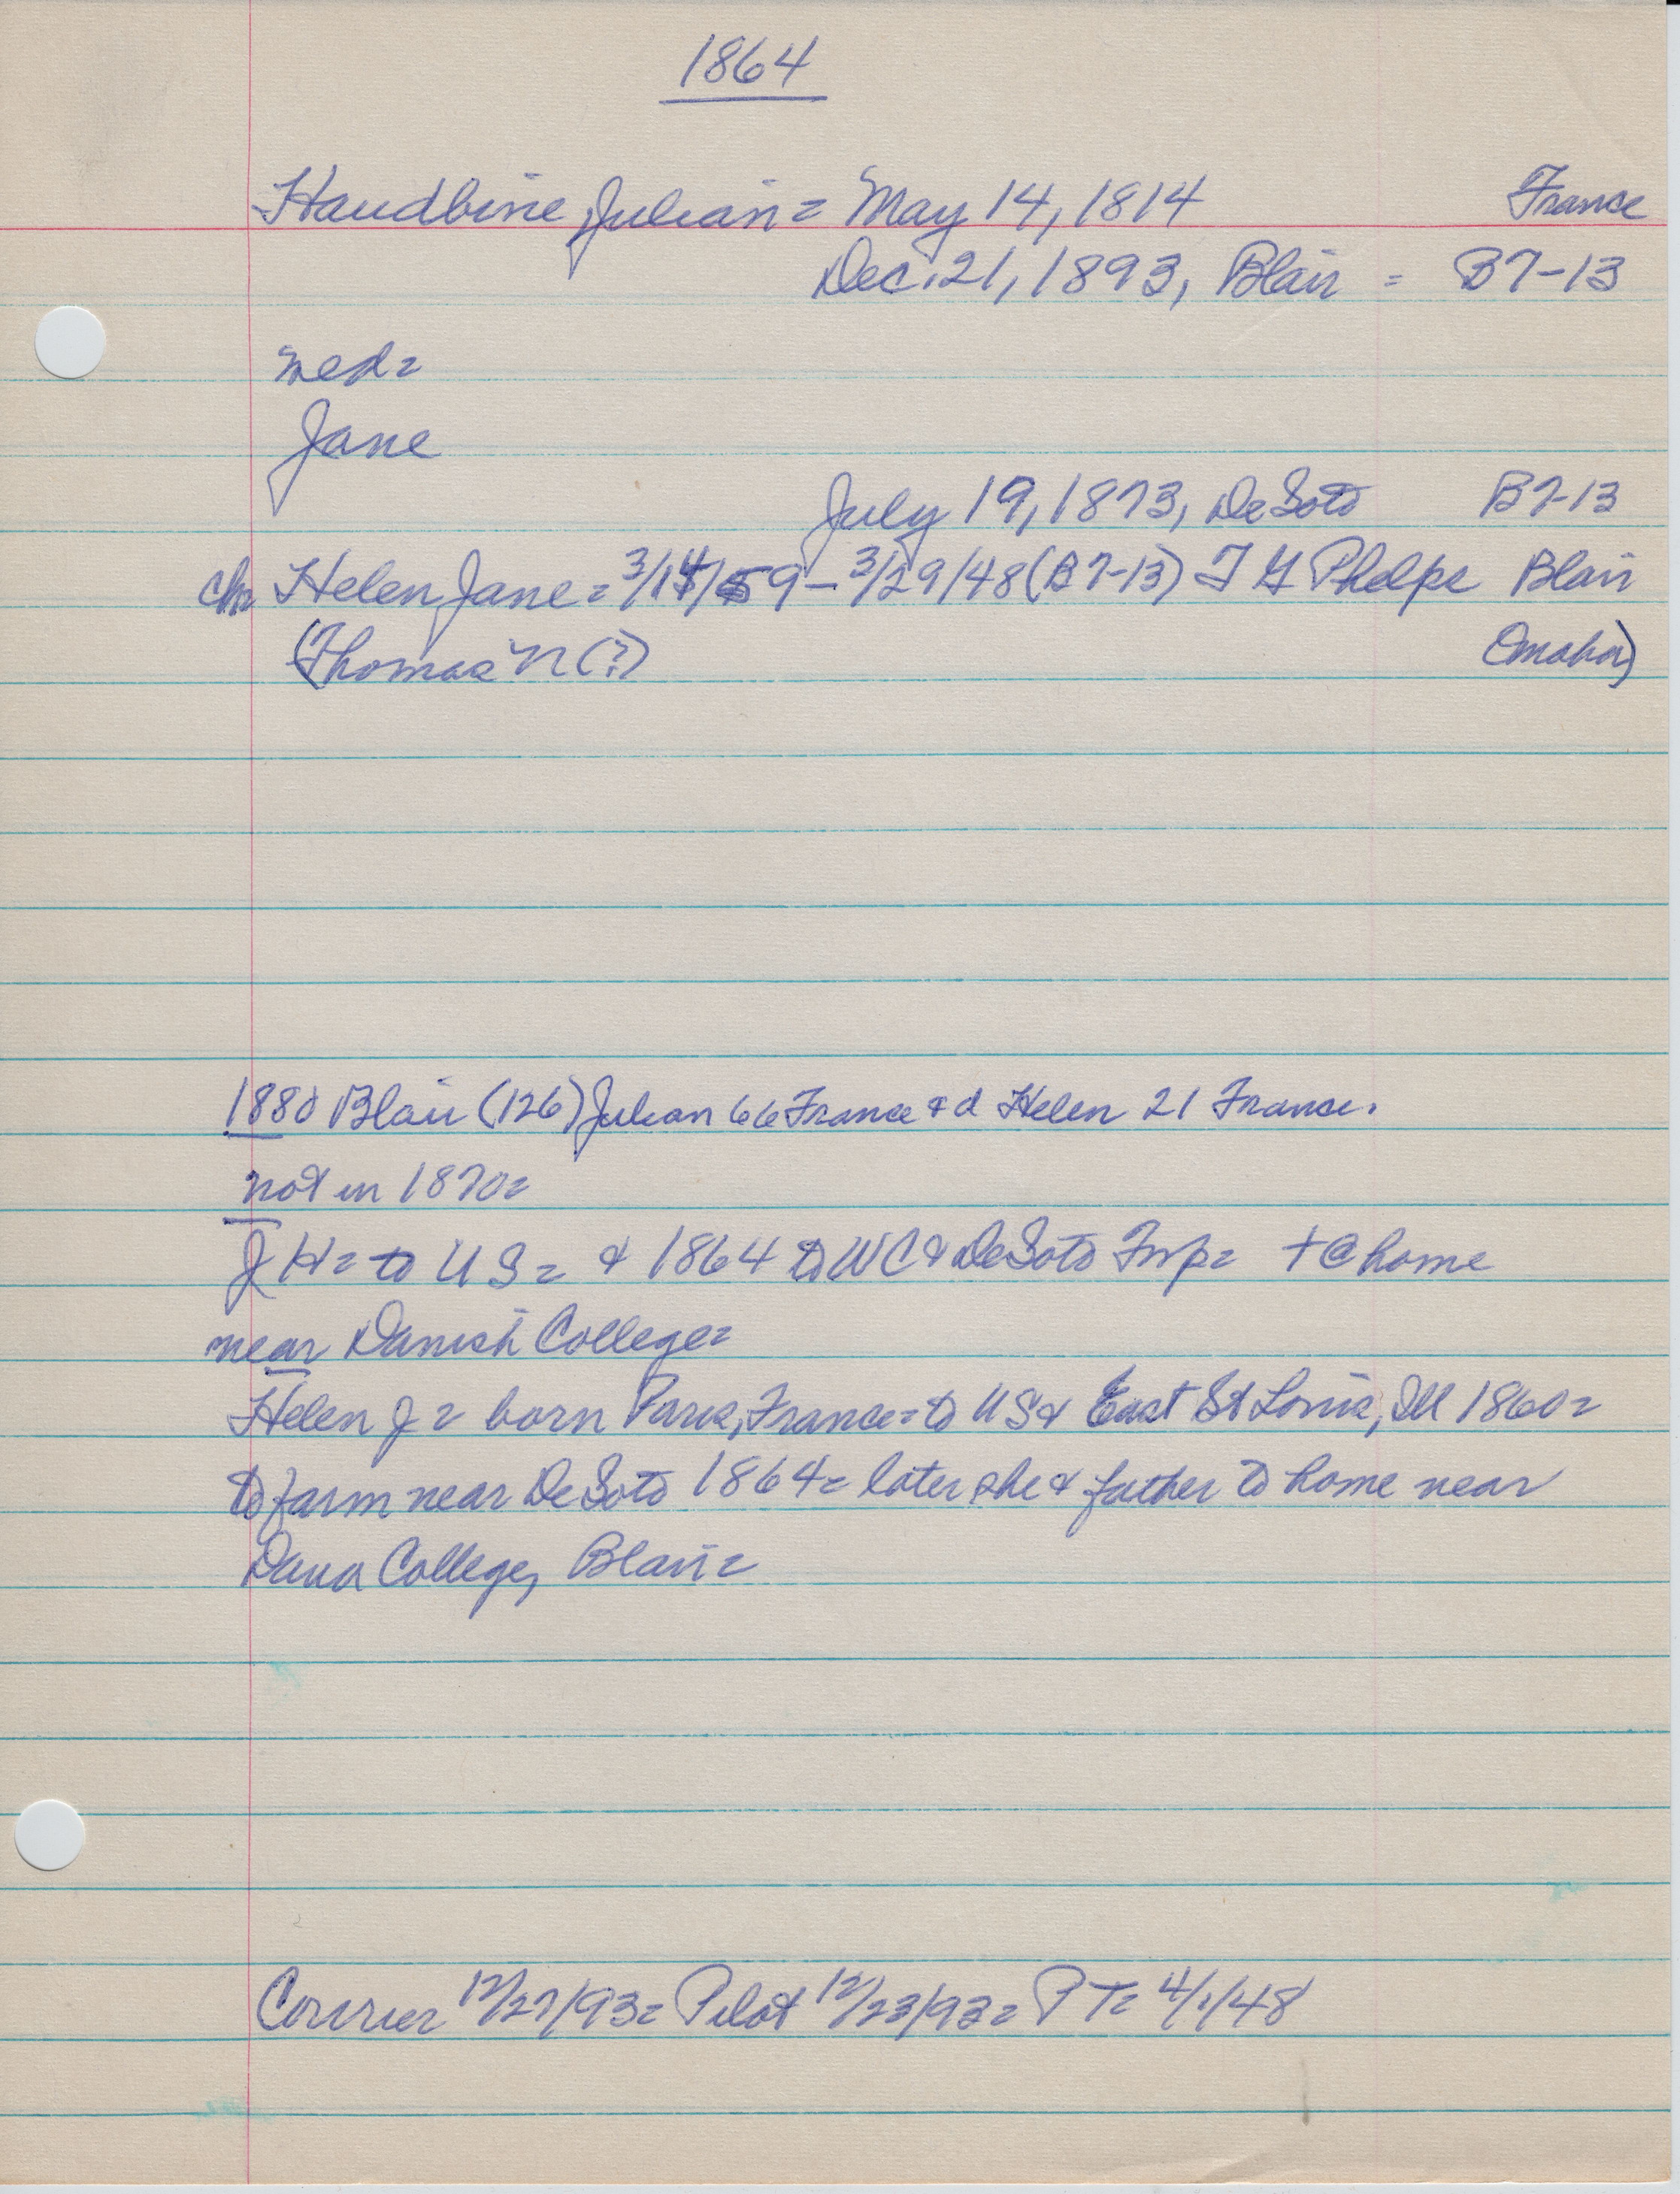 1864
Haudbine, Julian = May 14, 1814 France
Dec. 21, 1893, Blair = B7-13
med=
Jane
July 19, 1873, DeSoto B7-13
chn Helen Jane = 3/14/59 - 3/29/48 (B7-13) T G Phelps Blair
(Thomas N (?) Omaha)
1880 Blair (126) Julian 66 France & d Helen 21 France.
not in 1870=
J H = to U S = & 1864 to WC & DeSoto Twp = + @ home
near Danish College=
Helen J = born Paris, France = to US & East St Louis, Ill 1860=
to farm near DeSoto 1864= later she & father to home near
Dana College, Blair=
Courier 12/27/93= Pilot 12/23/93= P T= 4/1/48